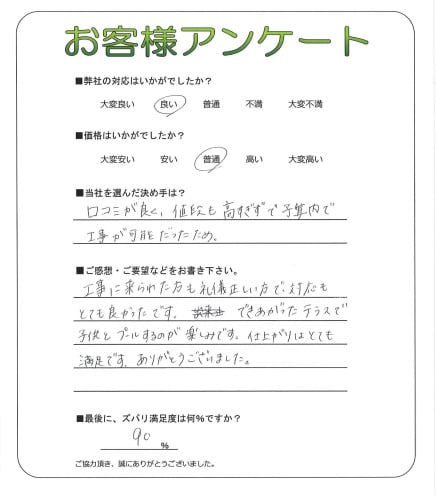 お客様アンケート
■弊社の対応はいかがでしたか？
大変良い 良い 普通 不満 大変不満
■価格はいかがでしたか？
大変安い 安い 普通 高い 大変高い
■当社を選んだ決め手は？
口コミが良く、値段も高すぎずで予算内で
工事が可能だったため。
■ご感想・ご要望などをお書き下さい。
工事に来られた方も礼儀正しい方で、対応も
とても良かったです。 できあがったテラスで
子供とプールするのが楽しみです。仕上がりはとても
満足です。ありがとうございました。
■最後に、ズバリ満足度は何％ですか？
90 ％
ご協力頂き、誠にありがとうございました。